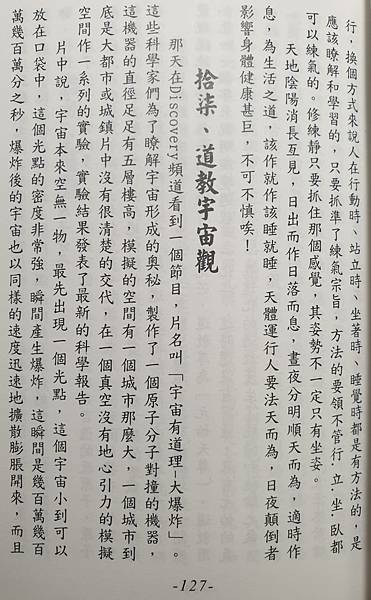 行，換個方式來說人在行動時、站立時、坐著時、睡覺時都是有方法的，是
應該瞭解和學習的，只要抓準了練氣宗旨，方法的要領不管行．立．坐．臥都
可以練氣的。修練靜只要抓住那個感覺，其姿勢不一定只有坐姿。
天地陰陽消長互見，日出而作日落而息，晝夜分明順天而為，適時作
息，為生活之道，該作就作該睡就睡，天體運行人要法天而為，日夜顛倒者
影響身體健康甚巨，不可不慎唉！
拾柒、道教宇宙觀
那天在Discovery頻道看到一個節目，片名叫「宇宙有道理—大爆炸」。
這些科學家們為了瞭解宇宙形成的奧秘，製作了一個原子分子對撞的機器，
這機器的直徑足足有五層樓高，模擬的空間有一個城市那麼大，一個城市到
底是大都市或城鎮片中沒有很清楚的交代，在一個真空沒有地心引力的模擬
空間作一系列的實驗，實驗結果發表了最新的科學報告。
片中說，宇宙本來空無一物，最先出現一個光點，這個宇宙小到可以
放在口袋中，這個光點的密度非常強，瞬間產生爆炸，這瞬間是幾百萬幾百
萬幾百萬分之秒，爆炸後的宇宙也以同樣的速度迅速地擴散膨脹開來，而且
-127-